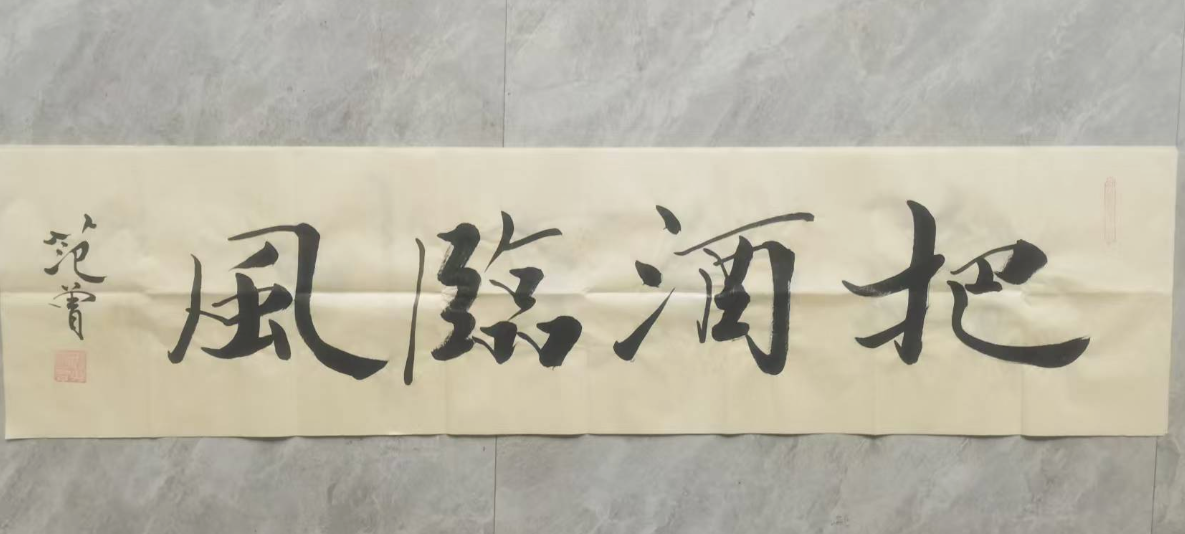 把酒臨風
范曾